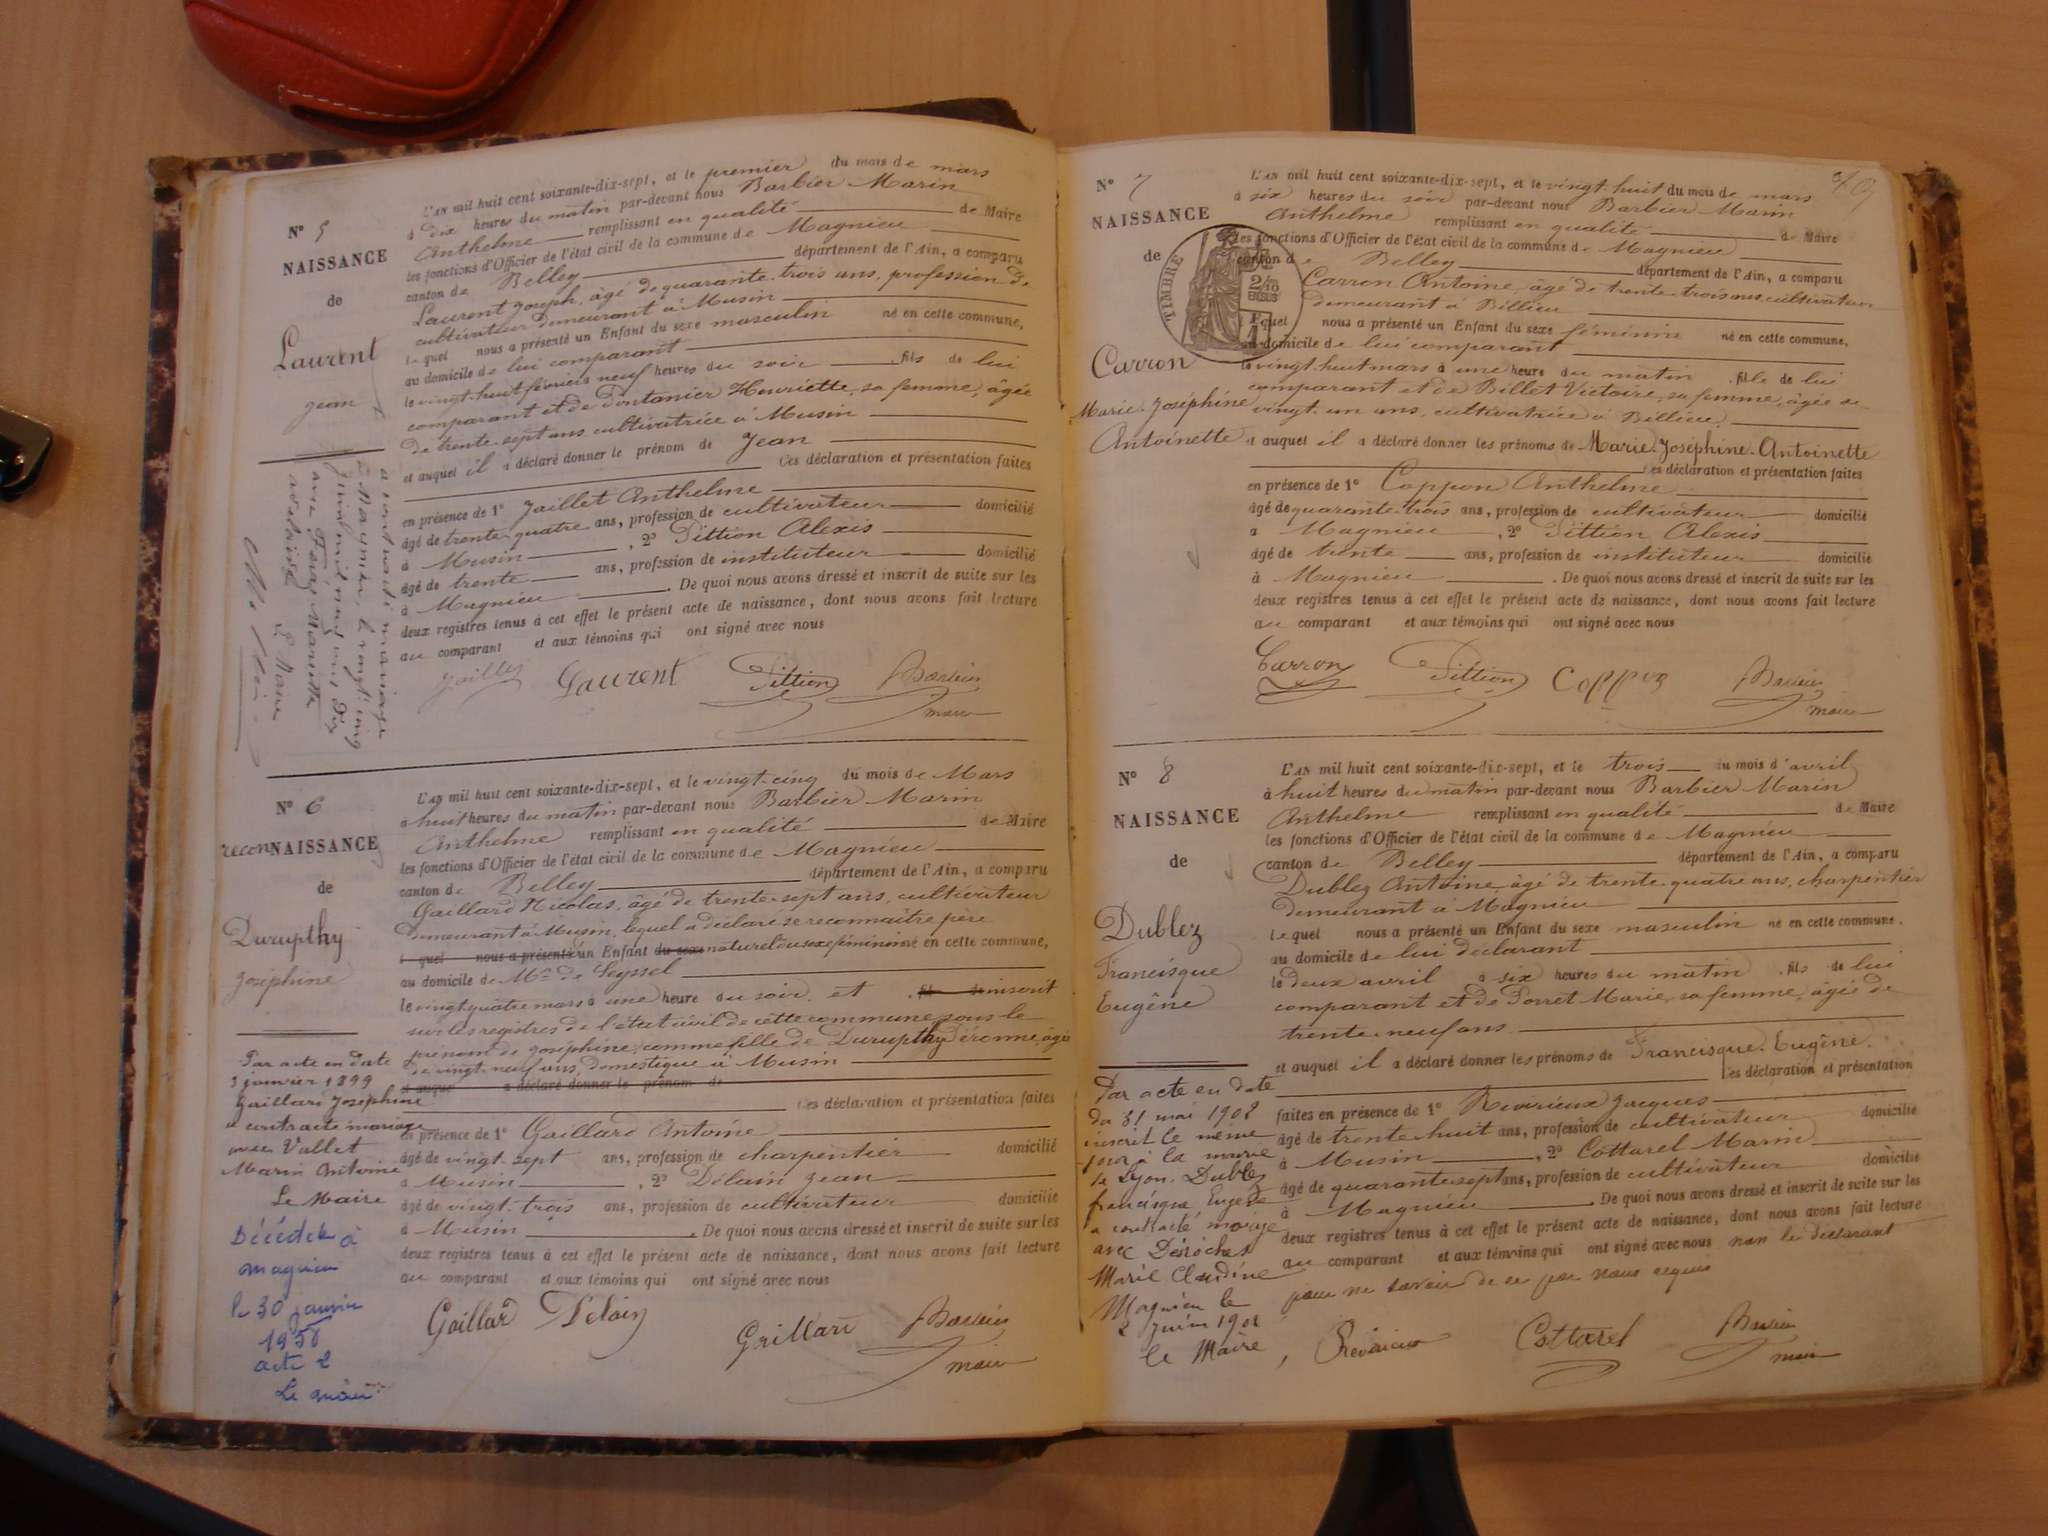 Nº 5
NAISSANCE
de
Laurent
Jean
L'AN mil huit cent soixante-dix-sept, et le premier du mois de mars
à dix heures du matin par-devant nous Barbier Marin
Anthelme remplissant en qualité de Maire
les fonctions d'Officier de l'état civil de la commune de Magnieu
canton de Belley département de l'Ain, a comparu
Laurent Joseph, âgé de quarante-trois ans, profession de
cultivateur demeurant à Musin
lequel nous a présenté un Enfant du sexe masculin né en cette commune,
au domicile de lui comparant
le vingt-huit février à neuf heures du soir fils de lui
comparant et de Henriette, sa femme, âgée
de trente-sept ans cultivatrice à Musin
et auquel il a déclaré donner le prénom de Jean
Ces déclaration et présentation faites
en présence de 1º Jaillet Anthelme
âgé de trente-quatre ans, profession de cultivateur domicilié
à Musin, 2º Pittion Alexis
âgé de trente ans, profession de instituteur domicilié
à Magnieu. De quoi nous avons dressé et inscrit de suite sur les
deux registres tenus à cet effet le présent acte de naissance, dont nous avons fait lecture
au comparant et aux témoins qui ont signé avec nous
Jaillet Laurent Pittion Barbier
maire
a contracté mariage
à le vingt cinq
avec
Le Maire
Nº 6
reconNAISSANCE
de
Durupthy
Joséphine
L'AN mil huit cent soixante-dix-sept, et le vingt-cinq du mois de Mars
à huit heures du matin par-devant nous Barbier Marin
Anthelme remplissant en qualité de Maire
les fonctions d'Officier de l'état civil de la commune de Magnieu
canton de Belley département de l'Ain, a comparu
Gaillard Nicolas, âgé de trente-sept ans, cultivateur
demeurant à Musin, lequel a déclaré se reconnaître père
lequel nous a présenté un Enfant du sexe naturel du sexe féminin né en cette commune,
au domicile de Mr de Seyssel
le vingt-quatre mars à une heure du soir et fil de inscrit
sur les registres de l'état civil de cette commune sous le
prénom de Joséphine, comme fille de Durupthy Péronne, âgée
de vingt-neuf ans, domestique à Musin
et auquel a déclaré donner le prénom de
Ces déclaration et présentation faites
en présence de 1º Gaillard Antoine
âgé de vingt-sept ans, profession de charpentier domicilié
à Musin, 2º Délain Jean
âgé de vingt-trois ans, profession de cultivateur domicilié
à Musin. De quoi nous avons dressé et inscrit de suite sur les
deux registres tenus à cet effet le présent acte de naissance, dont nous avons fait lecture
au comparant et aux témoins qui ont signé avec nous
Gaillard Delain Gaillard Barbier
maire
Par acte en date
3 janvier 1899
Gaillard Joséphine
a contracté mariage
avec Vallet
Marin Antoine
Le Maire
Décédée à
Magnieu
le 30 janvier
1958
acte 2
Le maire
Nº 7
NAISSANCE
de
TIMBRE
Carron
Marie-Joséphine
Antoinette
L'AN mil huit cent soixante-dix-sept, et le vingt-huit du mois de mars
à six heures du soir par-devant nous Barbier Marin
Anthelme remplissant en qualité de Maire
les fonctions d'Officier de l'état civil de la commune de Magnieu
canton de Belley département de l'Ain, a comparu
Carron Antoine, âgé de trente-trois ans, cultivateur
demeurant à Billieu
lequel nous a présenté un Enfant du sexe féminin né en cette commune,
au domicile de lui comparant
le vingt-huit mars à une heure du matin, fille de lui
comparant et de Billet Victoire, sa femme, âgée de
vingt-un ans, cultivatrice à Billieu
et auquel il a déclaré donner les prénoms de Marie-Joséphine-Antoinette
Ces déclaration et présentation faites
en présence de 1º Coppon Anthelme
âgé de quarante-trois ans, profession de cultivateur domicilié
à Magnieu, 2º Pittion Alexis
âgé de trente ans, profession de instituteur domicilié
à Magnieu. De quoi nous avons dressé et inscrit de suite sur les
deux registres tenus à cet effet le présent acte de naissance, dont nous avons fait lecture
au comparant et aux témoins qui ont signé avec nous
Carron Pittion Coppon Barbier
maire
Nº 8
NAISSANCE
de
Dublez
Francisque
Eugène
L'AN mil huit cent soixante-dix-sept, et le trois du mois d'avril
à huit heures du matin par-devant nous Barbier Marin
Anthelme remplissant en qualité de Maire
les fonctions d'Officier de l'état civil de la commune de Magnieu
canton de Belley département de l'Ain, a comparu
Dublez Antoine, âgé de trente-quatre ans, charpentier
demeurant à Magnieu
lequel nous a présenté un Enfant du sexe masculin né en cette commune,
au domicile de lui déclarant
le deux avril à six heures du matin, fils de lui
comparant et de Porret Marie, sa femme, âgée de
trente-neuf ans
et auquel il a déclaré donner les prénoms de Francisque-Eugène
Ces déclaration et présentation
faites en présence de 1º Revirieux Jacques
âgé de trente-huit ans, profession de cultivateur domicilié
à Musin, 2º Cottarel Marin
âgé de quarante-sept ans, profession de cultivateur domicilié
à Magnieu. De quoi nous avons dressé et inscrit de suite sur les
deux registres tenus à cet effet le présent acte de naissance, dont nous avons fait lecture
au comparant et aux témoins qui ont signé avec nous non le déclarant
pour ne savoir de ce par nous requis
Revirieux Cottarel Barbier
maire
Par acte en date
du 31 mai 1908
inscrit le même
jour à la mairie
de Lyon, Dublez
francisque Eugène
a contracté mariage
avec Desroches
Marie Claudine
Magnieu le
2 Juin 1908
le Maire